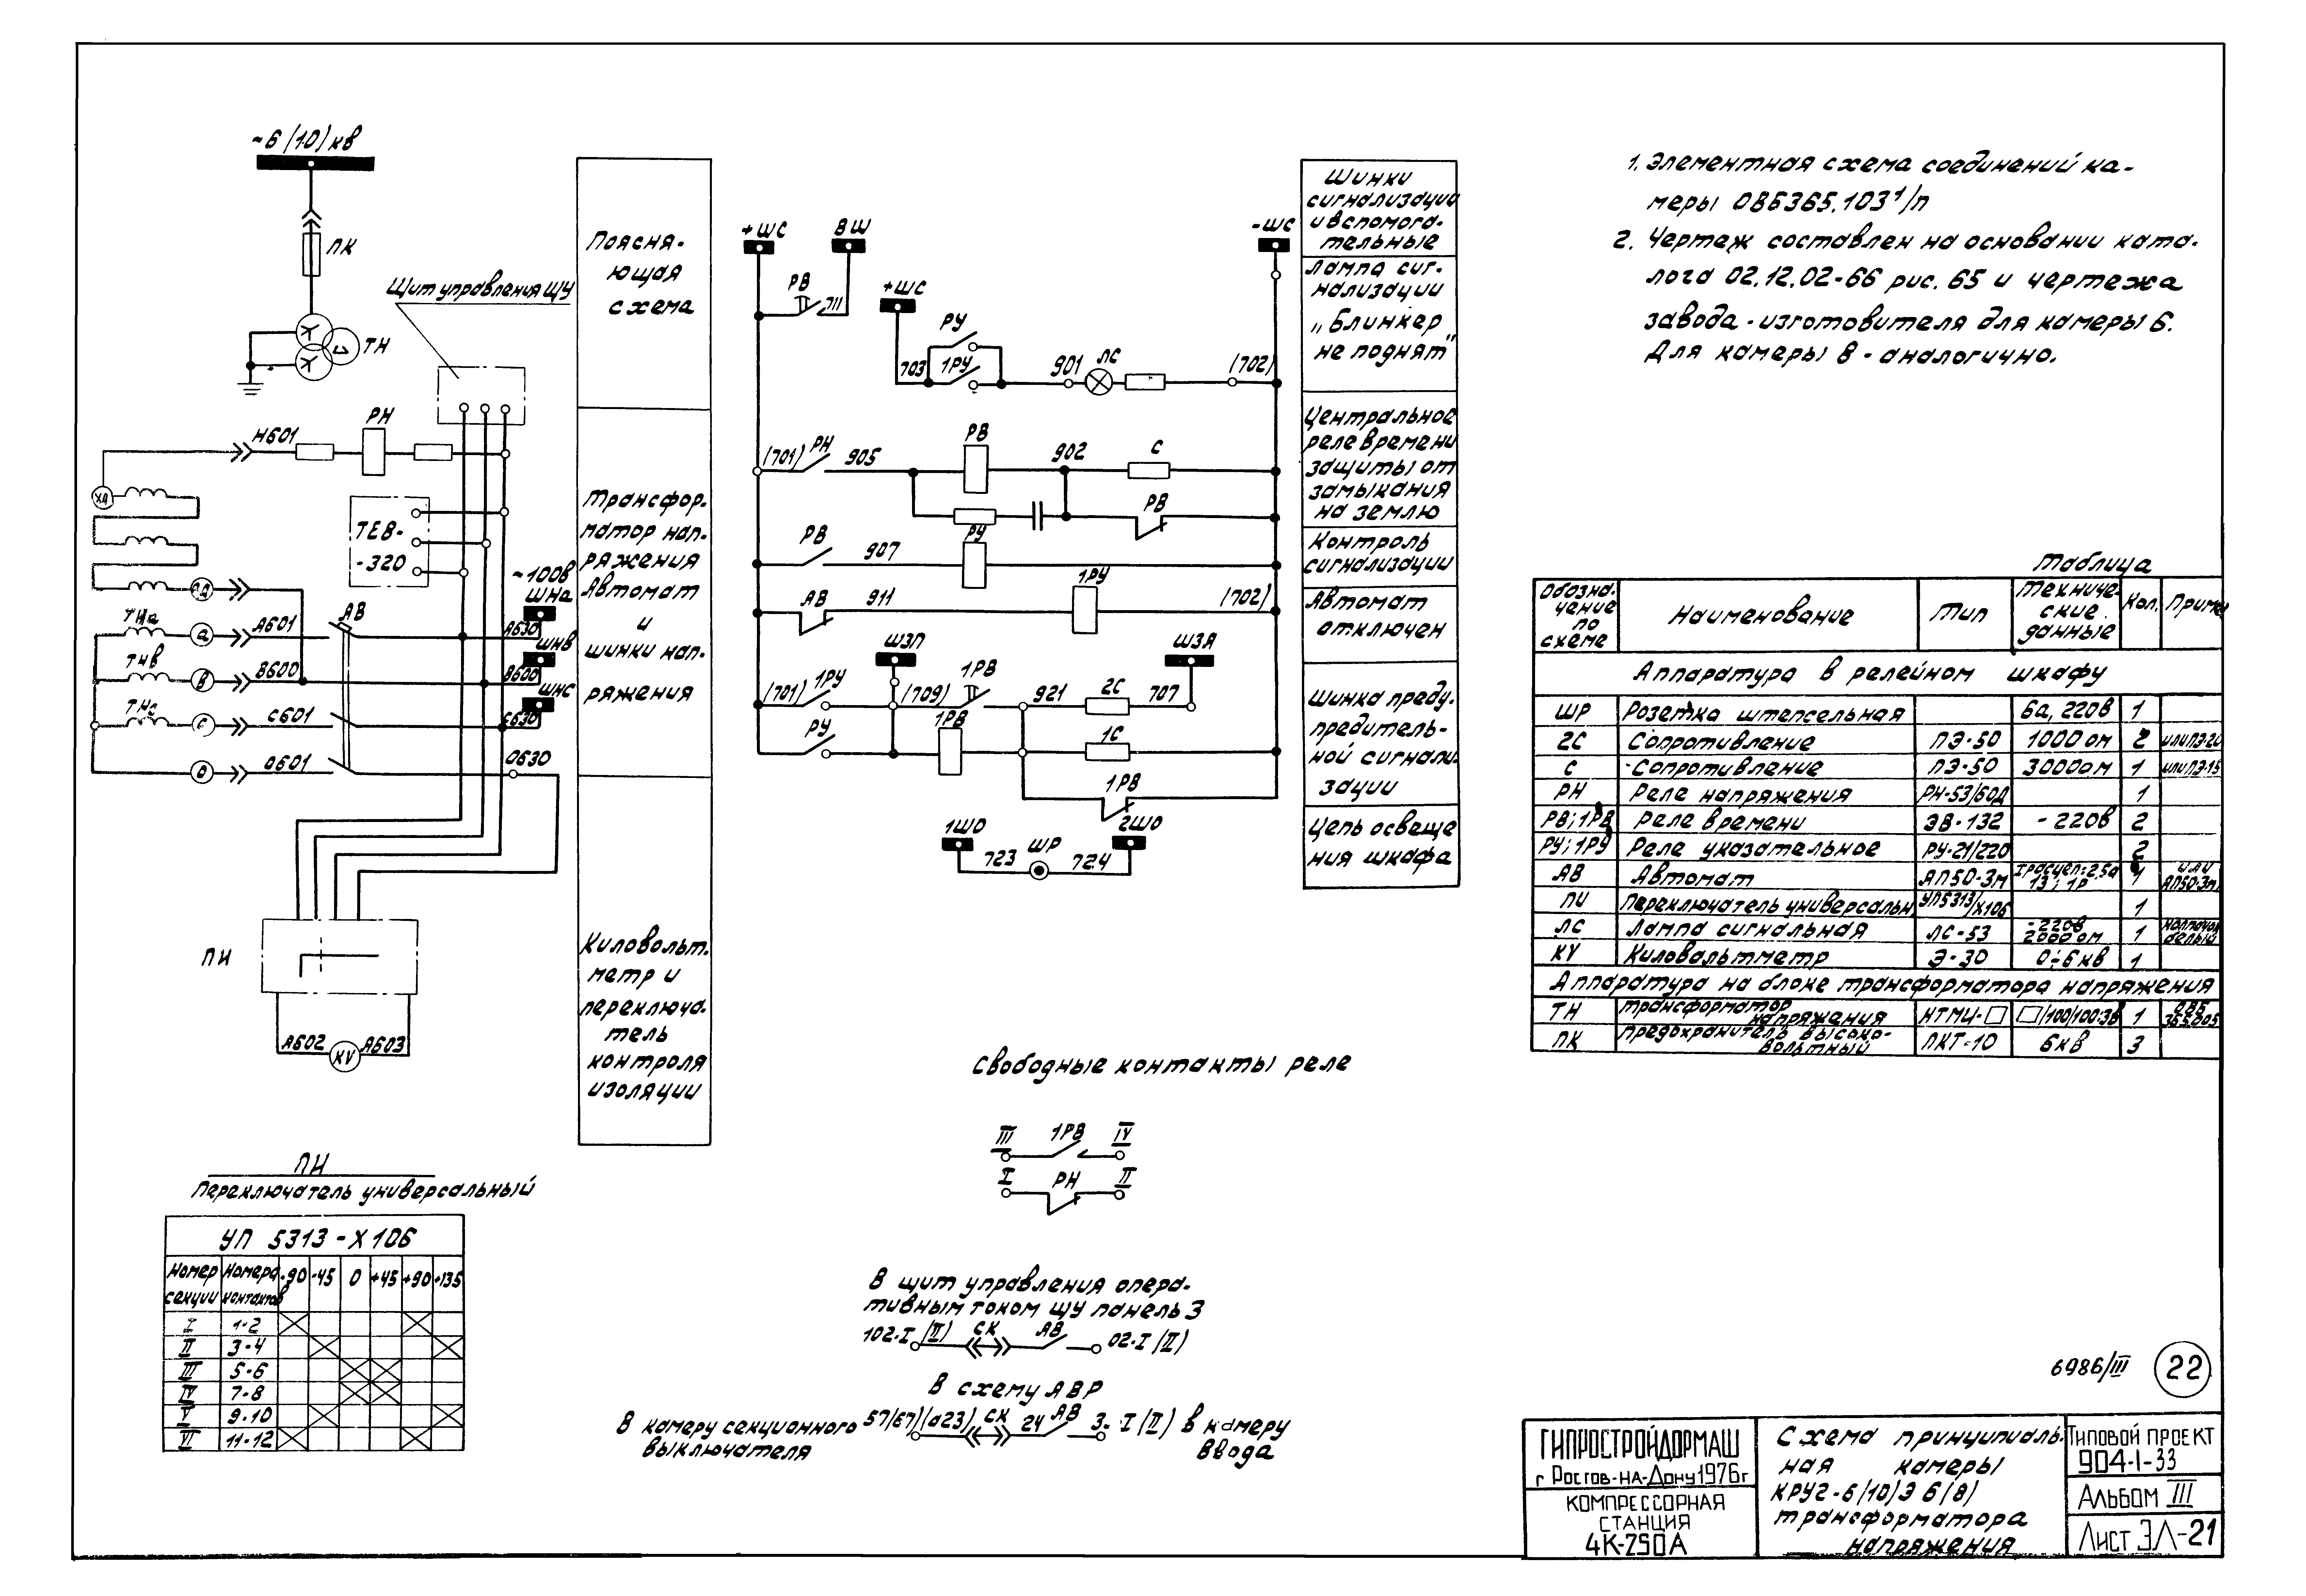 ~6(10)кв
ПК
ТН
Щит управления ЩУ
Н601
РН
ХД
ТЕВ-
-320
~100в
ШНа
А630
ШНв
В600
ШНс
С630
ТНа
а
А601
АВ
ТНв
в
В600
ТНс
с
С601
0
0601
0630
ПН
А602
KV
А603
Поясня-
ющая
схема
Трансфор-
матор нап-
ряжения
Автомат
и
шинки нап-
ряжения
Киловольт-
метр и
переключа-
тель
контроля
изоляции
+ШС
ВШ
-ШС
РВ
711
+ШС
РУ
703
1РУ
901
ЛС
(702)
(701)
РН
905
РВ
902
С
РВ
РВ
907
РУ
АВ
911
1РУ
(702)
ШЗП
ШЗА
(701)
1РУ
(709)
1РВ
921
2С
707
РУ
1РВ
1С
1РВ
1ШО
2ШО
723
ШР
724
Шинки
сигнализации
и вспомога-
тельные
Лампа сиг-
нализации
„Блинкер
не поднят"
Центральное
реле времени
защиты от
замыкания
на землю
Контроль
сигнализации
Автомат
отключен
Шинка преду-
предитель-
ной сигнали-
зации
Цепь освеще
ния шкафа
1. Элементная схема соединений ка-
меры ОВБ365.103¹/п
2. Чертеж составлен на основании ката-
лога 02.12.02-66 рис. 65 и чертежа
завода-изготовителя для камеры 6.
Для камеры 8 - аналогично.
Таблица
Обозна-
чение
по
схеме
Наименование
Тип
Техниче-
ские
данные
Кол.
Примеч
Аппаратура в релейном шкафу
ШР Розетка штепсельная 6а, 220в 1
2С Сопротивление ПЭ-50 1000 ом 2 или ПЭ-20
С Сопротивление ПЭ-50 3000 ом 1 или ПЭ-15
РН Реле напряжения РН-53/60Д 1
РВ; 1РВ Реле времени ЭВ-132 -220в 2
РУ; 1РУ Реле указательное РУ-21/220 2
АВ Автомат АП50-3м Iрасцеп=2,5а 13; 1Р 1 или АП50-3м
ПИ Переключатель универсальн. УП5313/х106 1
ЛС Лампа сигнальная ЛС-53 -220в 2000 ом 1 колпачок белый
KV Киловальтметр Э-30 0÷6кв 1
Аппаратура на блоке трансформатора напряжения
ТН Трансформатор напряжения НТМИ-□ □/100/100:3в 1
ПК Предохранитель высоко-вольтный ПКТ-10 6кв 3
Свободные контакты реле
III 1РВ IV
I РН II
В щит управления опера-
тивным током ЩУ панель 3
102-I (II) СК АВ 02-I (II)
В схему АВР
В камеру секционного
выключателя
57(67)(а23) СК 24 АВ 3-I (II)
в камеру
ввода
ПН
Переключатель универсальный
УП 5313-Х106
Номер
секции
Номера
контактов
-90 -45 0 +45 +90 +135
I 1-2
II 3-4
III 5-6
IV 7-8
V 9-10
VI 11-12
6986/III
22
ГИПРОСТРОЙДОРМАШ
г Ростов-на-Дону 1976г
КОМПРЕССОРНАЯ
СТАНЦИЯ
4К-250А
Схема принципиаль-
ная камеры
КРУ2-6(10)Э 6(8)
трансформатора
напряжения
Типовой проект
904-1-33
Альбом III
Лист ЭЛ-21